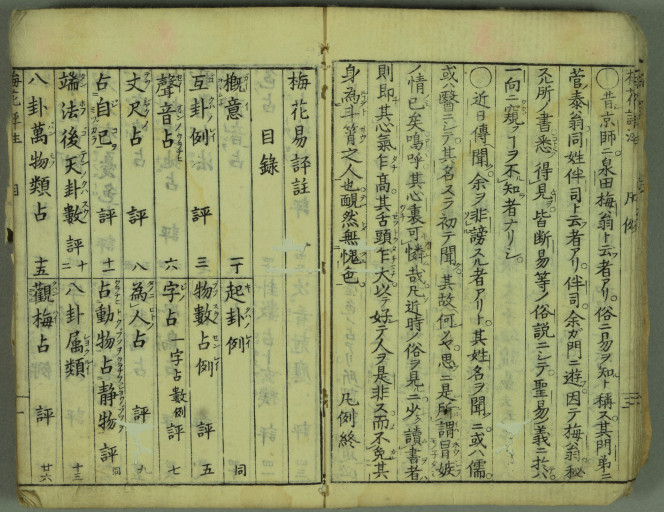 〇昔京師ニ泉田梅翁ト云者アリ俗ニ易ヲ知ト稱ス其門弟ニ
菅泰翁同姓伴司ト云者アリ伴司余ガ門ニ遊フ因テ梅翁秘
スル所ノ書悉ク得見ルニ皆断易等ノ俗説ニシテ聖易ノ義ニ於ハ
一向ニ窺フヿヲ不知者ナリシ
〇近日傳聞ク余ヲ非謗スル者アリト其姓名ヲ聞ニ或ハ儒
或ハ醫ニシテ其名スラ初テ聞ク其故何ンヤ思ニ是所謂冒嫉
ノ情已矣嗚呼其心裏可憐哉凡近時ノ俗ヲ見ルニ少ク讀書者
則即其心氣乍高其舌頭乍大以テ好テ人ヲ是非ス而不免其
身為斗筲之人也靦然無愧色 凡例終
梅花易評註
目錄
概意 一丁 起卦例 同
互卦例 評 三 物數占例 評 五
聲音占 評 六 字占 一字占數例 評 七
丈尺占 評 八 為人占 評 九
占自己 評 十一 占動物占静物 評 同
端法後天卦數 評 十二 八卦属類 十三
八卦萬物類占 十五 觀梅占 評 廿六